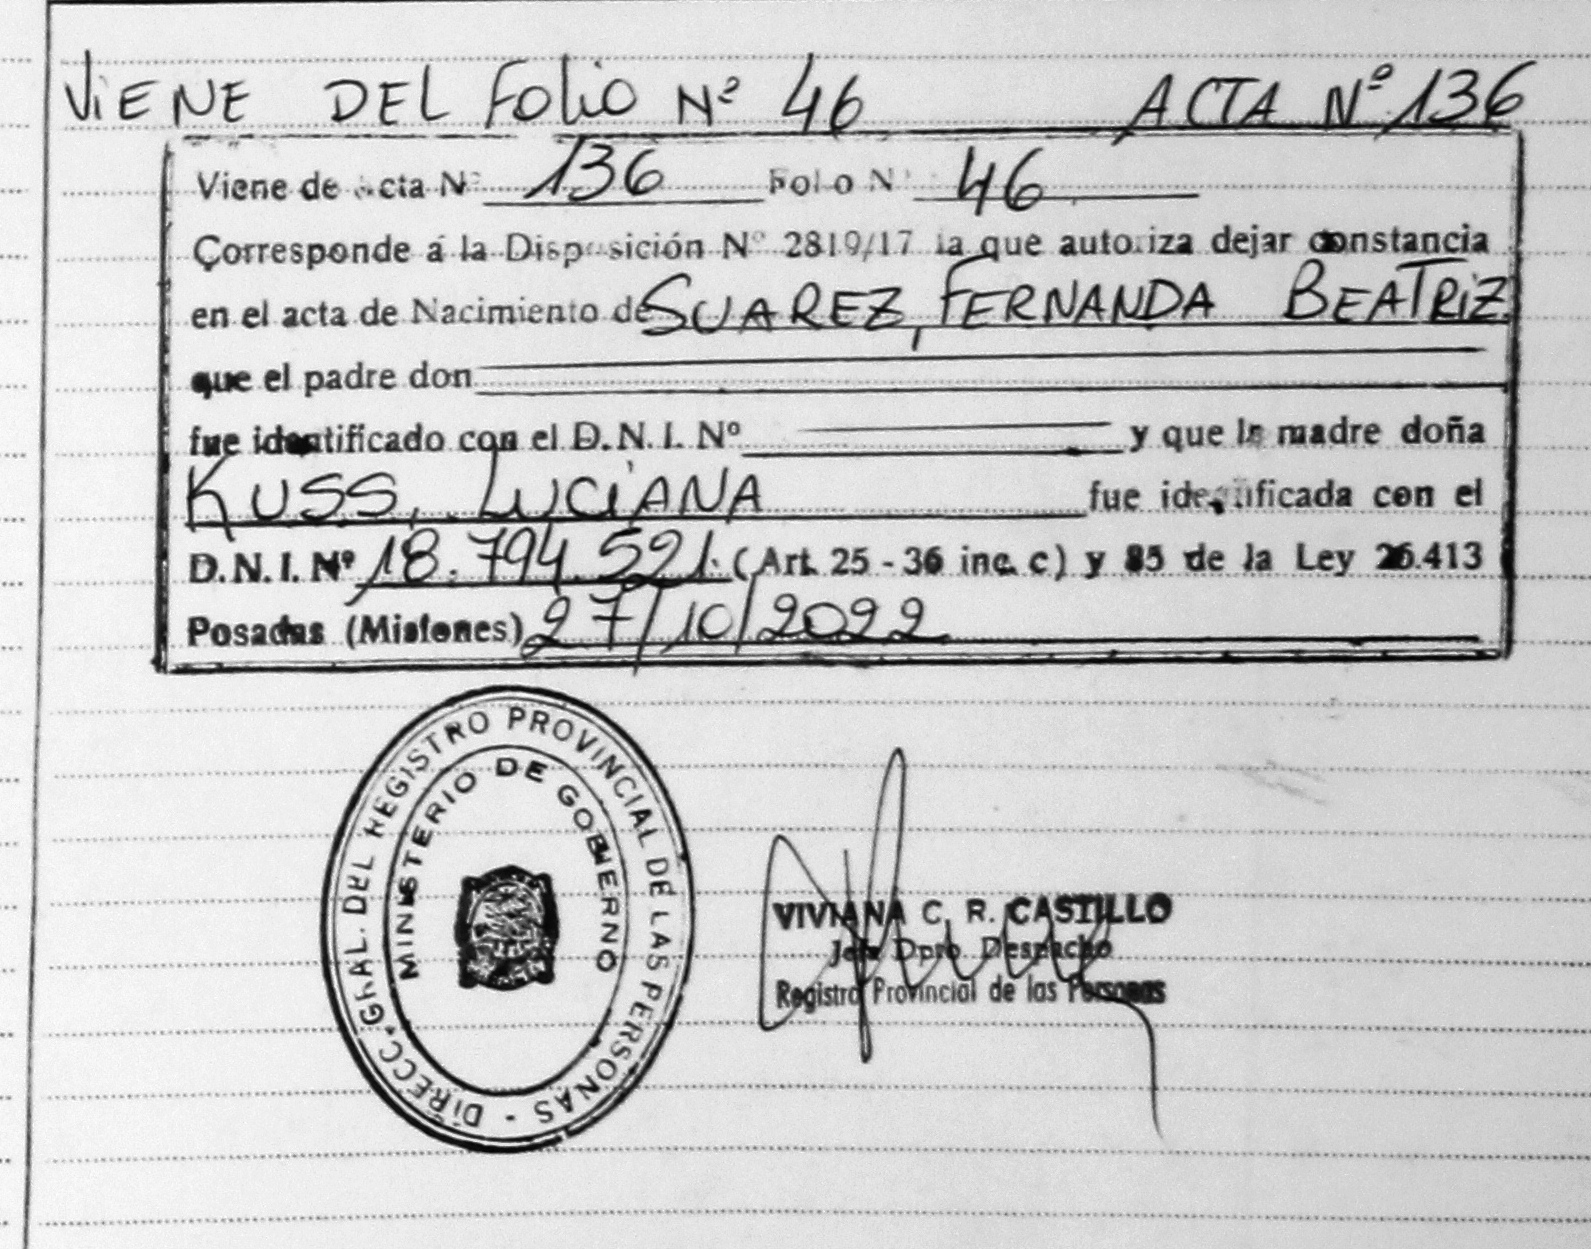 ViENE DEL FOLIO Nº 46 ACTA Nº 136
Viene de Acta Nº 136 Folio Nº 46
Corresponde á la Disposición Nº 2819/17 la que autoriza dejar constancia
en el acta de Nacimiento de SUAREZ, FERNANDA BEATRiZ
que el padre don
fue identificado con el D.N.I. Nº y que la madre doña
KUSS, LUCiANA fue identificada con el
D.N.I. Nº 18.794.521. (Art. 25 - 36 inc. c) y 85 de la Ley 26.413
Posadas (Misiones) 27/10/2022
DIRECC. GRAL. DEL REGISTRO PROVINCIAL DE LAS PERSONAS -
MINISTERIO DE GOBIERNO
VIVIANA C. R. CASTILLO
Jefa Dpto. Despacho
Registro Provincial de las Personas